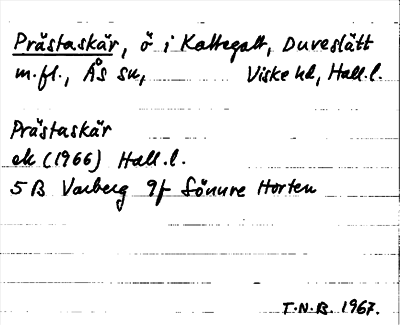 Prästaskär, ö i Kattegatt, Duveslätt
m.fl., Ås sn, Viske hd, Hall.l.
Prästaskär
ek (1966) Hall.l.
5B Varberg 9f Sönnre Horten
T.N.B. 1967.